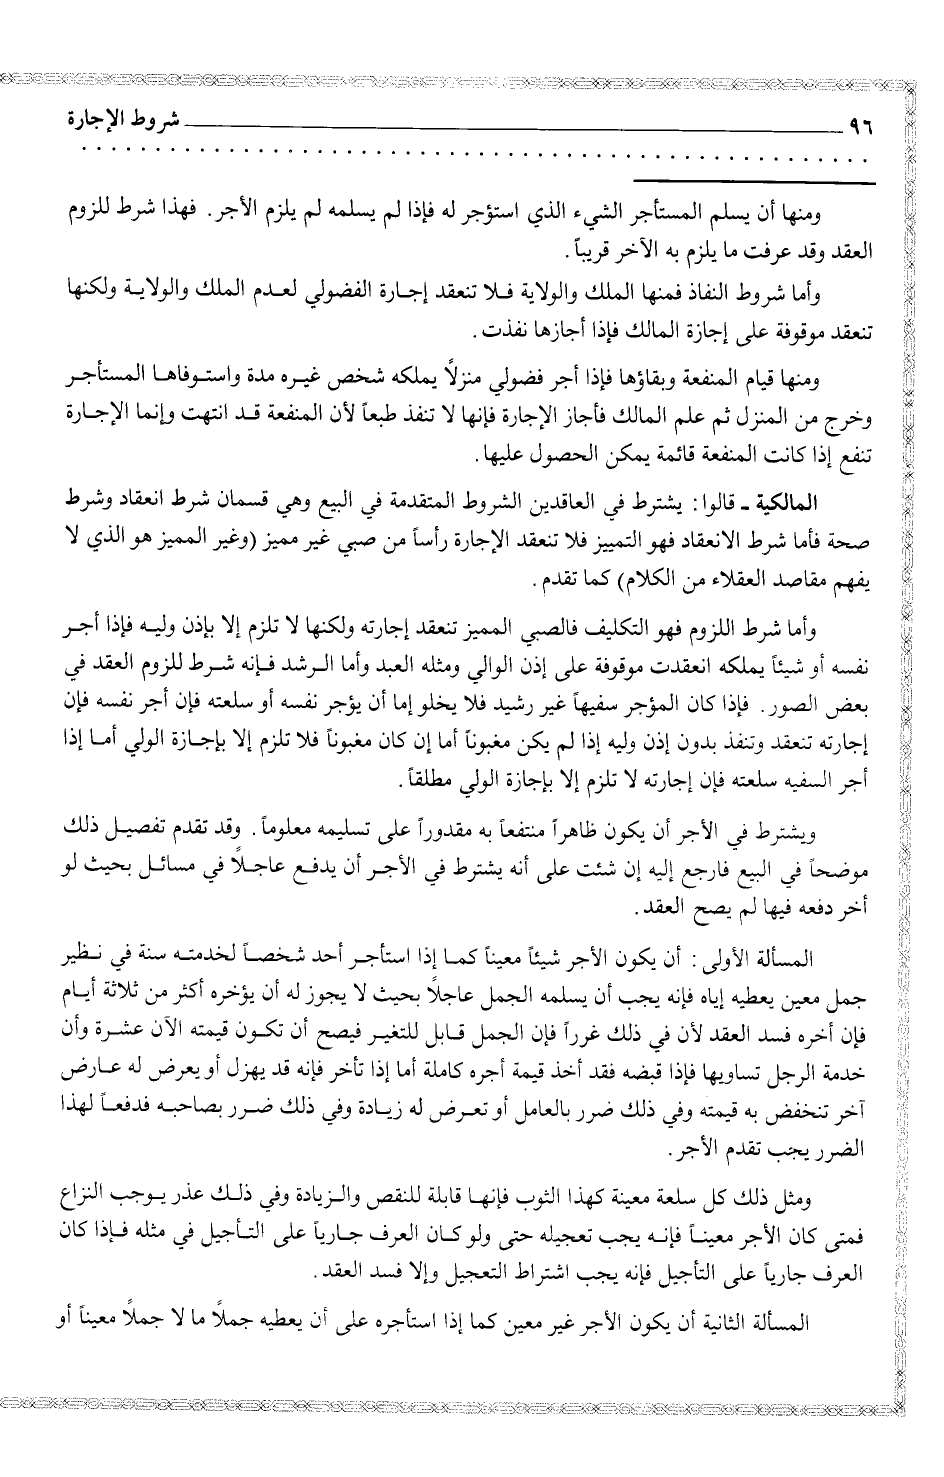 ٩٦ ــــــــــــــــــــــــــــــــــــــــ شروط الإجارة
ومنها أن يسلم المستأجر الشيء الذي استؤجر له فإذا لم يسلمه لم يلزم الأجر. فهذا شرط للزوم
العقد وقد عرفت ما يلزم به الآخر قريباً.
وأما شروط النفاذ فمنها الملك والولاية فلا تنعقد إجارة الفضولي لعدم الملك والولاية ولكنها
تنعقد موقوفة على إجازة المالك فإذا أجازها نفذت.
ومنها قيام المنفعة وبقاؤها فإذا أجر فضولي منزلاً يملكه شخص غيره مدة واستوفاها المستأجر
وخرج من المنزل ثم علم المالك فأجاز الإجارة فإنها لا تنفذ طبعاً لأن المنفعة قد انتهت وإنما الإجارة
تنفع إذا كانت المنفعة قائمة يمكن الحصول عليها.
المالكية ـ قالوا: يشترط في العاقدين الشروط المتقدمة في البيع وهي قسمان شرط انعقاد وشرط
صحة فأما شرط الانعقاد فهو التمييز فلا تنعقد الإجارة رأساً من صبي غير مميز (وغير المميز هو الذي لا
يفهم مقاصد العقلاء من الكلام) كما تقدم.
وأما شرط اللزوم فهو التكليف فالصبي المميز تنعقد إجارته ولكنها لا تلزم إلا بإذن وليه فإذا أجر
نفسه أو شيئاً يملكه انعقدت موقوفة على إذن الوالي ومثله العبد وأما الرشد فإنه شرط للزوم العقد في
بعض الصور. فإذا كان المؤجر سفيهاً غير رشيد فلا يخلو إما أن يؤجر نفسه أو سلعته فإن أجر نفسه فإن
إجارته تنعقد وتنفذ بدون إذن وليه إذا لم يكن مغبوناً أما إن كان مغبوناً فلا تلزم إلا بإجازة الولي أما إذا
أجر السفيه سلعته فإن إجارته لا تلزم إلا بإجازة الولي مطلقاً.
ويشترط في الأجر أن يكون ظاهراً منتفعاً به مقدوراً على تسليمه معلوماً. وقد تقدم تفصيل ذلك
موضحاً في البيع فارجع إليه إن شئت على أنه يشترط في الأجر أن يدفع عاجلاً في مسائل بحيث لو
أخر دفعه فيها لم يصح العقد.
المسألة الأولى: أن يكون الأجر شيئاً معيناً كما إذا استأجر أحد شخصاً لخدمته سنة في نظير
جمل معين يعطيه إياه فإنه يجب أن يسلمه الجمل عاجلاً بحيث لا يجوز له أن يؤخره أكثر من ثلاثة أيام
فإن أخره فسد العقد لأن في ذلك غرراً فإن الجمل قابل للتغير فيصح أن تكون قيمته الآن عشرة وأن
خدمة الرجل تساويها فإذا قبضه فقد أخذ قيمة أجره كاملة أما إذا تأخر فإنه قد يهزل أو يعرض له عارض
آخر تنخفض به قيمته وفي ذلك ضرر بالعامل أو تعرض له زيادة وفي ذلك ضرر بصاحبه فدفعاً لهذا
الضرر يجب تقدم الأجر.
ومثل ذلك كل سلعة معينة كهذا الثوب فإنها قابلة للنقص والزيادة وفي ذلك عذر يوجب النزاع
فمتى كان الأجر معيناً فإنه يجب تعجيله حتى ولو كان العرف جارياً على التأجيل في مثله فإذا كان
العرف جارياً على التأجيل فإنه يجب اشتراط التعجيل وإلا فسد العقد.
المسألة الثانية أن يكون الأجر غير معين كما إذا استأجره على أن يعطيه جملاً ما لا جملاً معيناً أو